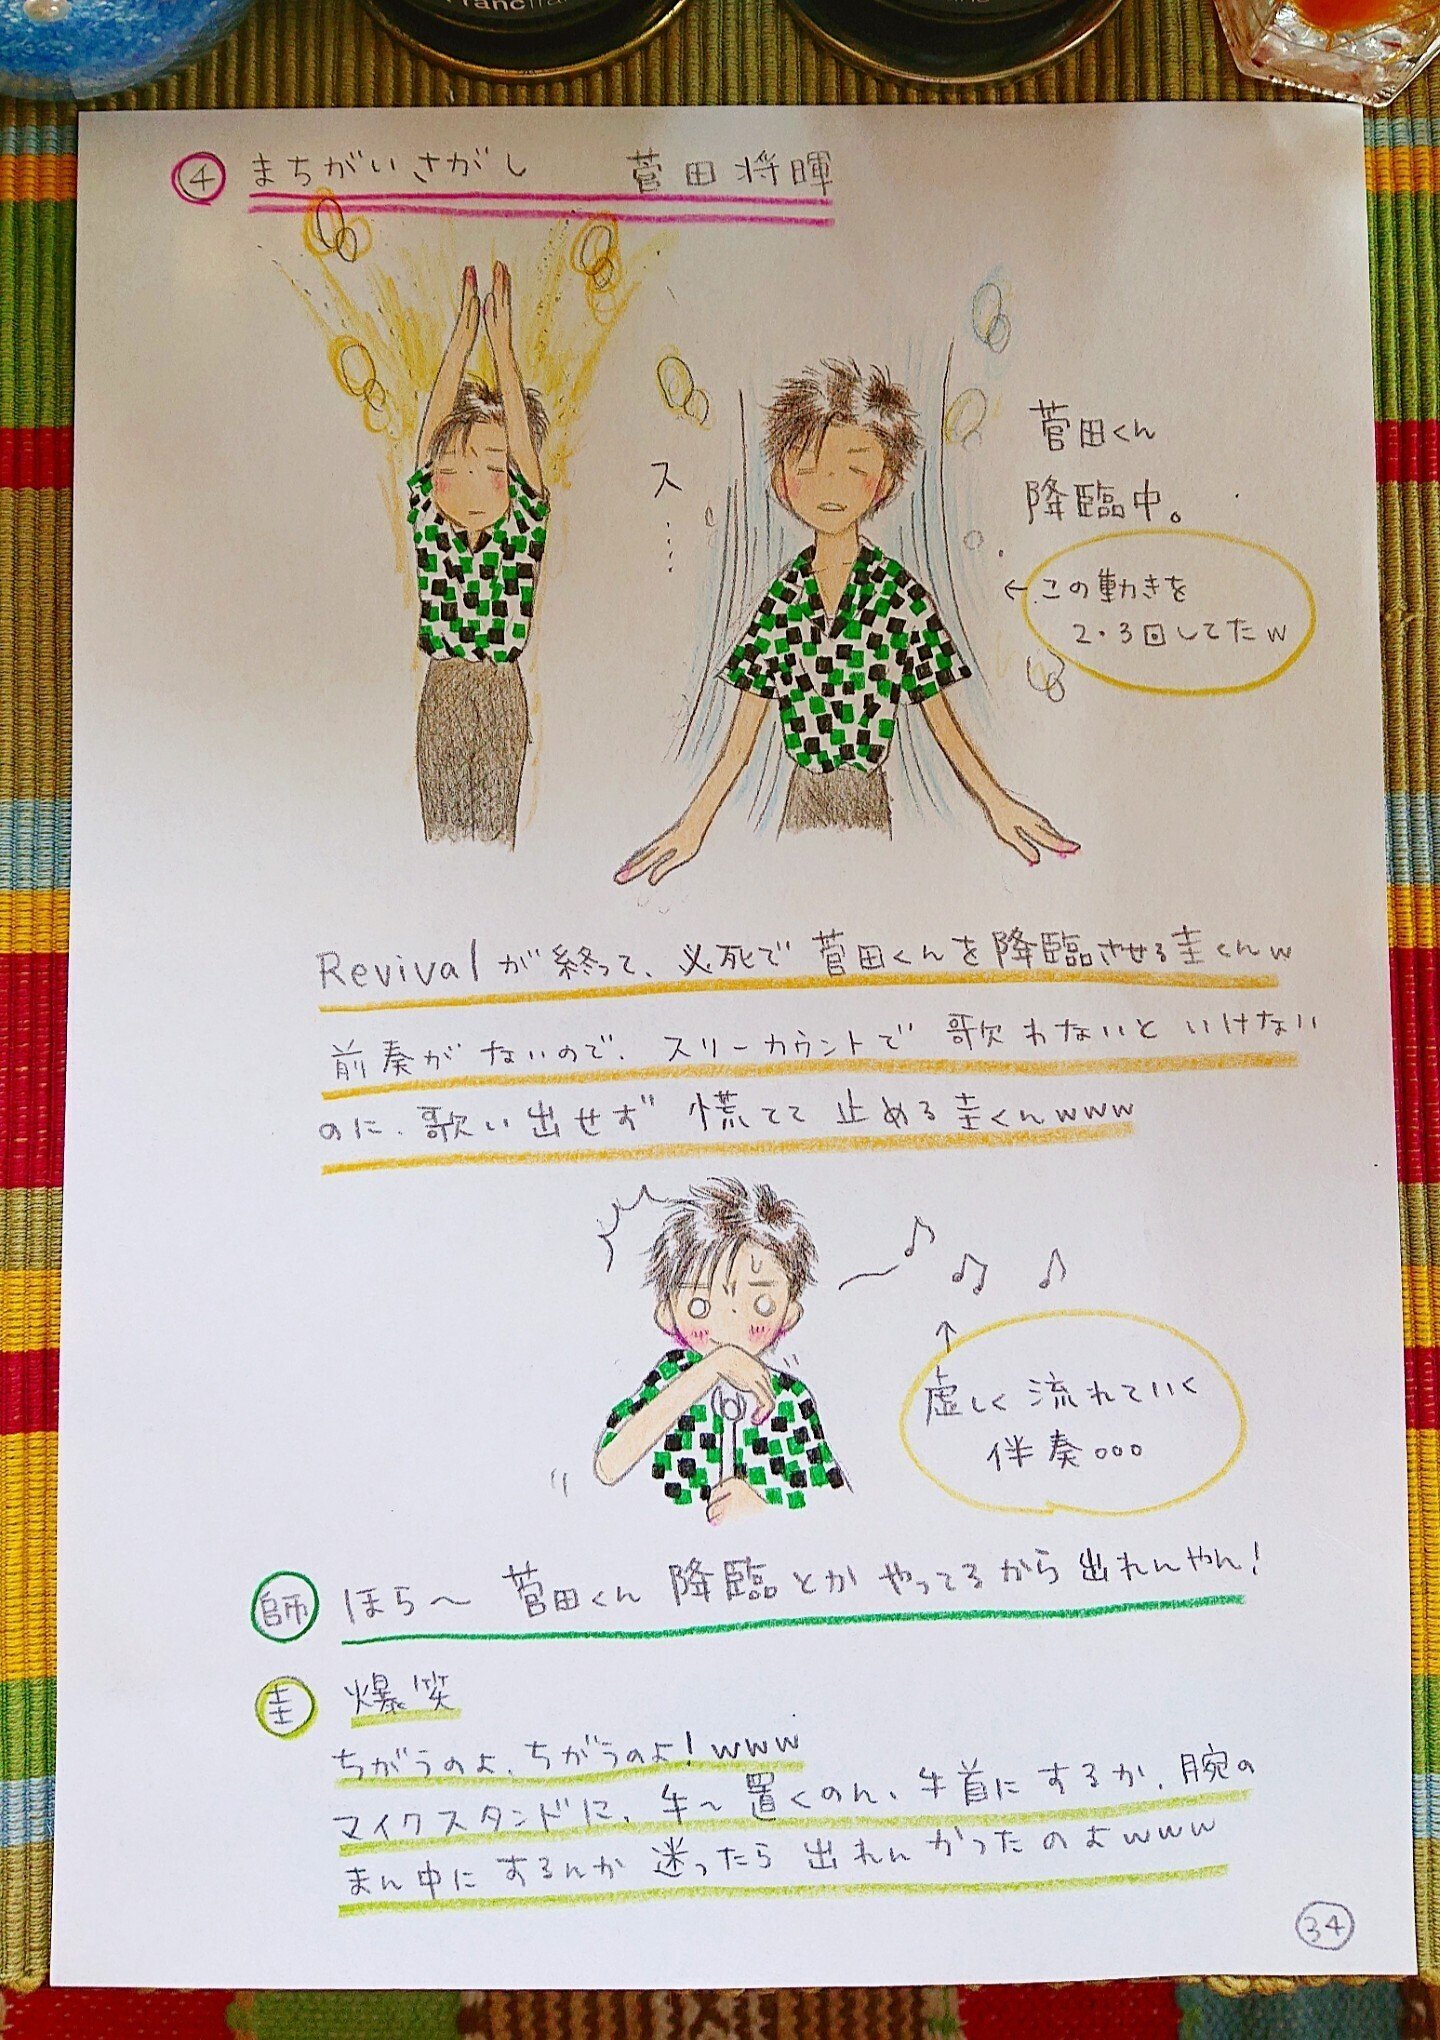 Francfran
④ まちがいさがし 菅田将暉
ス…
菅田くん
降臨中。
←この動きを
2・3回してたw
Revivalが終って、必死で菅田くんを降臨させる圭くんw
前奏がないので、スリーカウントで歌わないといけない
のに、歌い出せず慌てて止める圭くんwww
↑
虚しく流れていく
伴奏。。。
師 ほら〜菅田くん降臨とかやってるから出れんやん!
圭 爆笑
ちがうのよ、ちがうのよ!www
マイクスタンドに、手〜置くのん、手首にするか、腕の
まん中にするんか迷ったら出れんかったのよwww
34